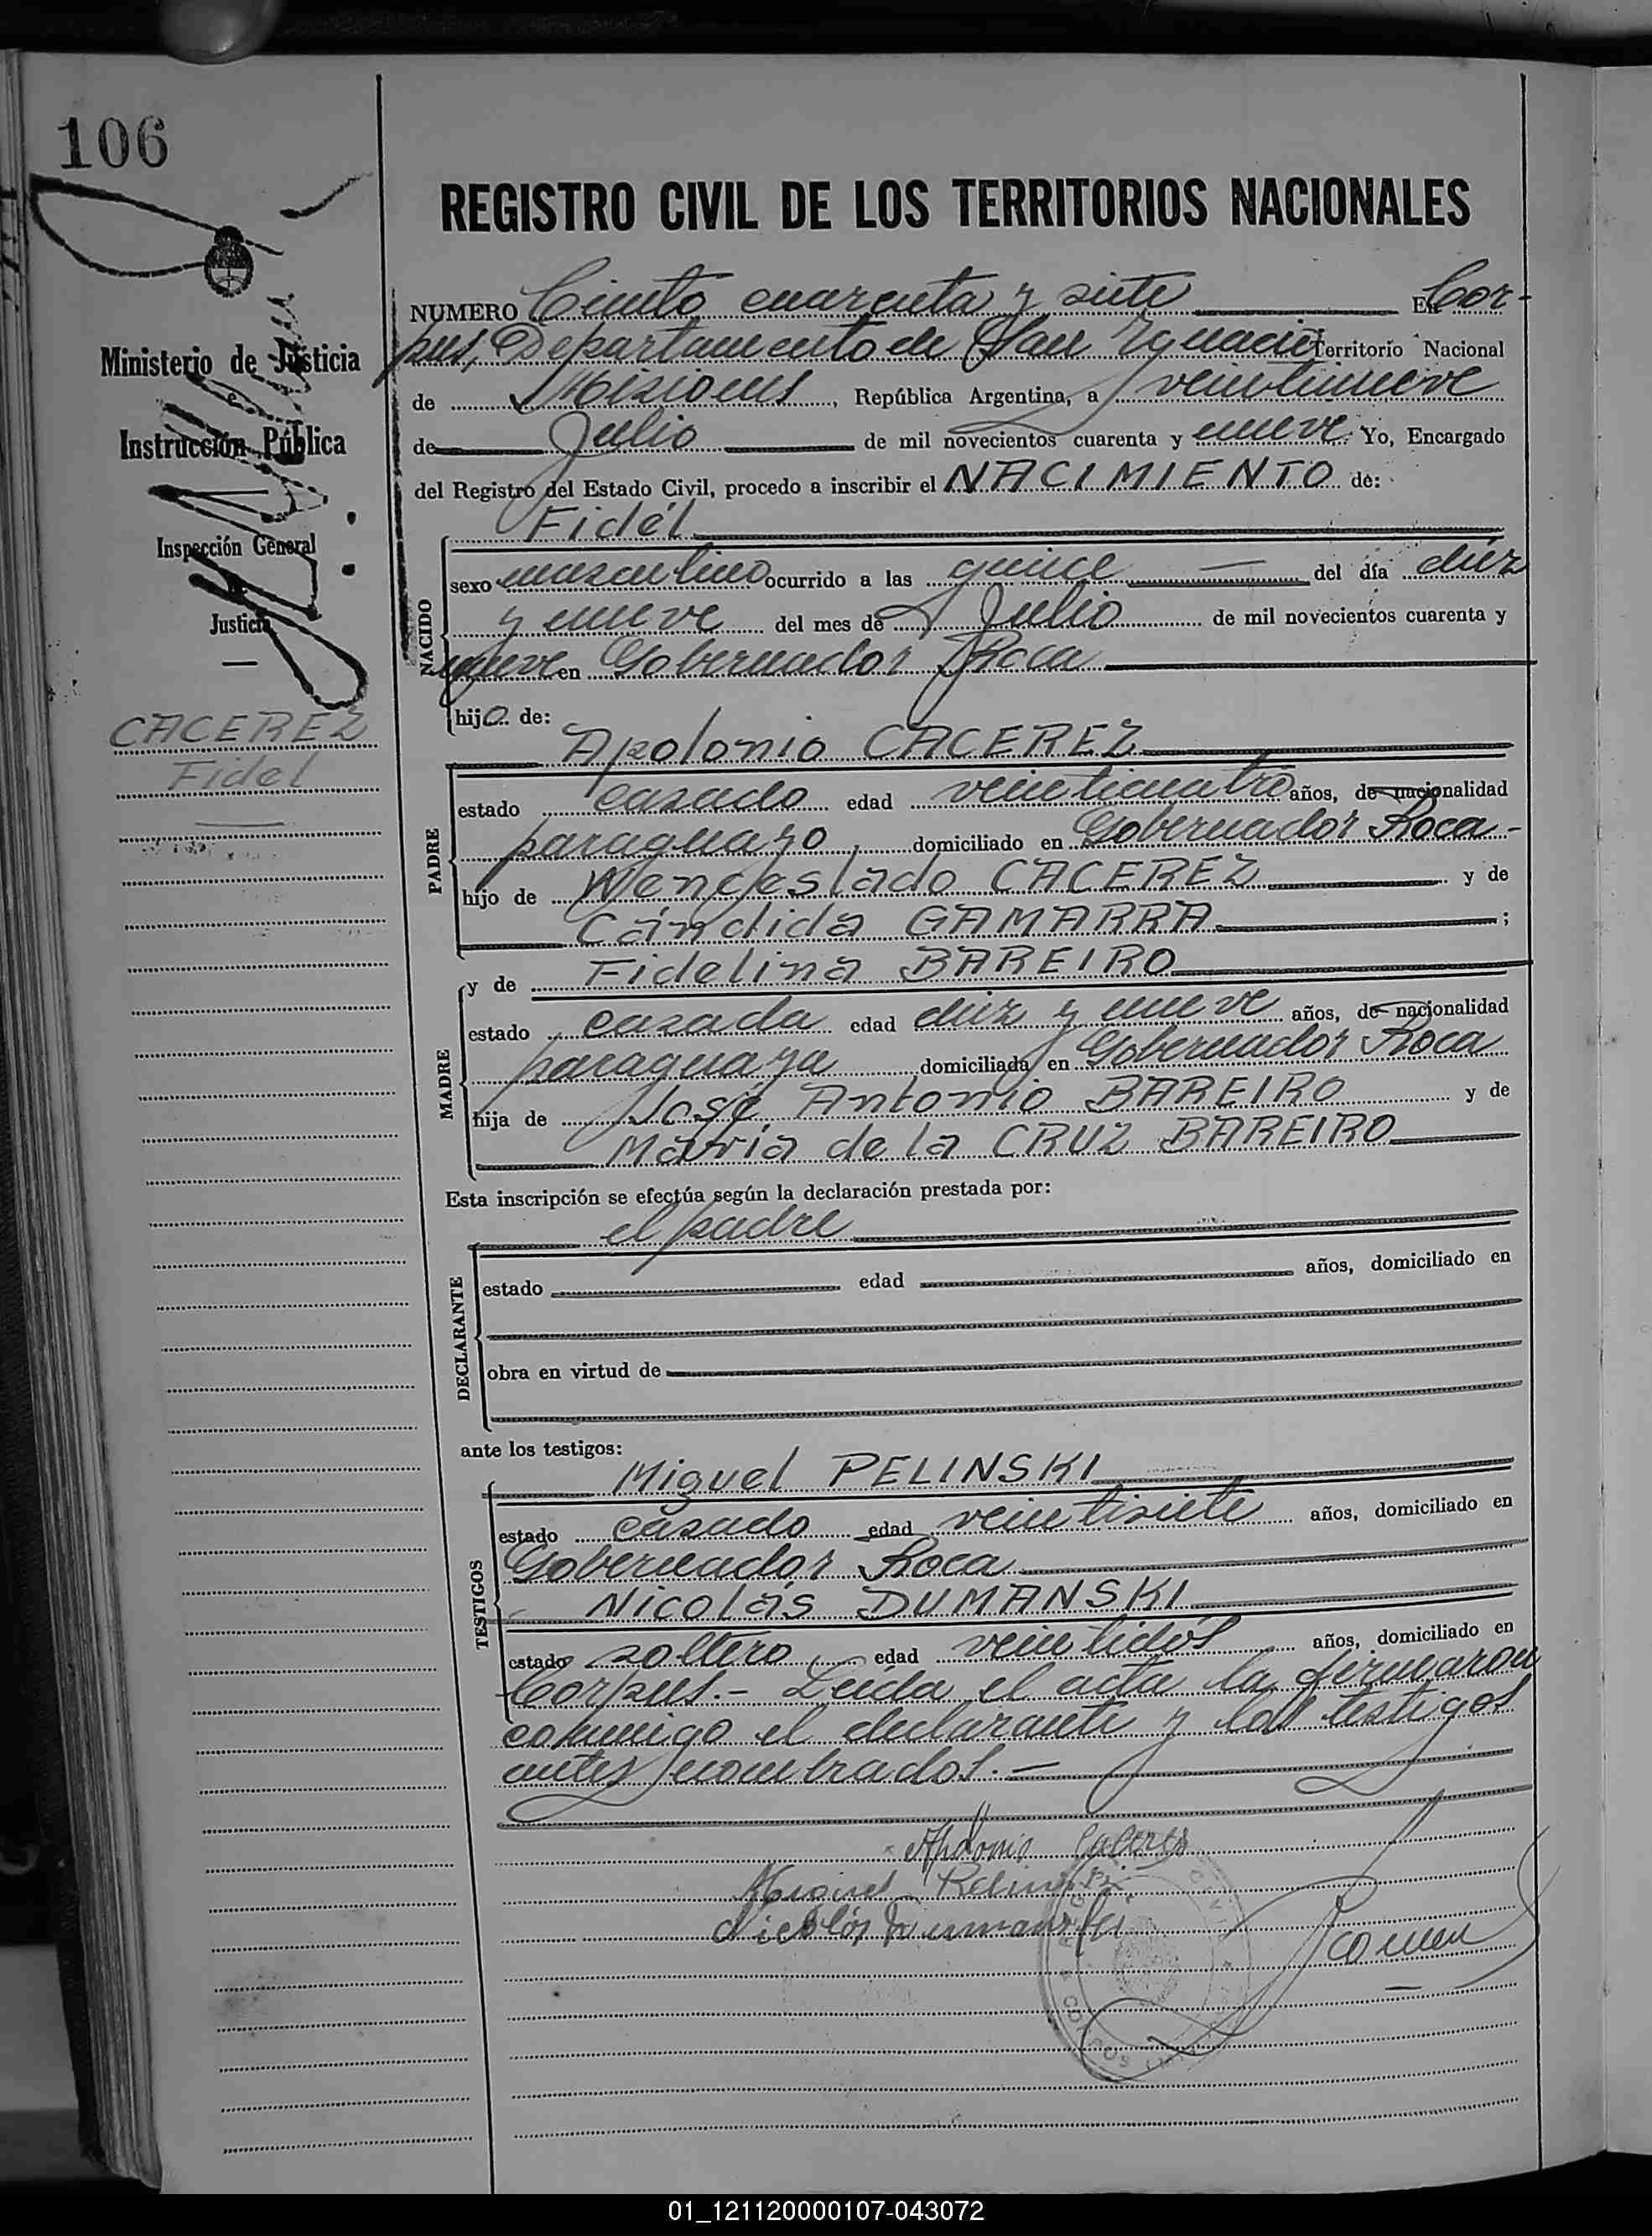 106
REGISTRO CIVIL DE LOS TERRITORIOS NACIONALES
Ministerio de Justicia
e
Instrucción Pública
Inspección General
Justicia
CACEREZ
Fidel
NUMERO Ciento cuarenta y siete En Cor-
pus, Departamento de San Ygnacio Territorio Nacional
de Misiones, República Argentina, a veintinueve
de Julio de mil novecientos cuarenta y nueve. Yo, Encargado
del Registro del Estado Civil, procedo a inscribir el NACIMIENTO de:
Fidél
NACIDO
sexo masculino ocurrido a las quince — del día diez
y nueve del mes de Julio de mil novecientos cuarenta y
nueve en Gobernador Roca
hijo de:
Apolonio CACEREZ
PADRE
estado casado edad veinticuatro años, de nacionalidad
paraguayo, domiciliado en Gobernador Roca-
hijo de Wenceslado CACEREZ y de
Cándida GAMARRA ;
y de Fidelina BAREIRO
MADRE
estado casada edad diez y nueve años, de nacionalidad
paraguaya domiciliada en Gobernador Roca
hija de José Antonio BAREIRO y de
María de la CRUZ BAREIRO
Esta inscripción se efectúa según la declaración prestada por:
el padre
DECLARANTE
estado edad años, domiciliado en
obra en virtud de
ante los testigos:
Miguel PELINSKI
TESTIGOS
estado casado edad veintisiete años, domiciliado en
Gobernador Roca
Nicolás DUMANSKI
estado soltero, edad veintidós años, domiciliado en
Corpus.- Leída el acta la firmaron
conmigo el declarante y los testigos
antes nombrados.-
Apolonio Caceres
Miguel Pelinski
Nicolás Dumanski
01_121120000107-043072